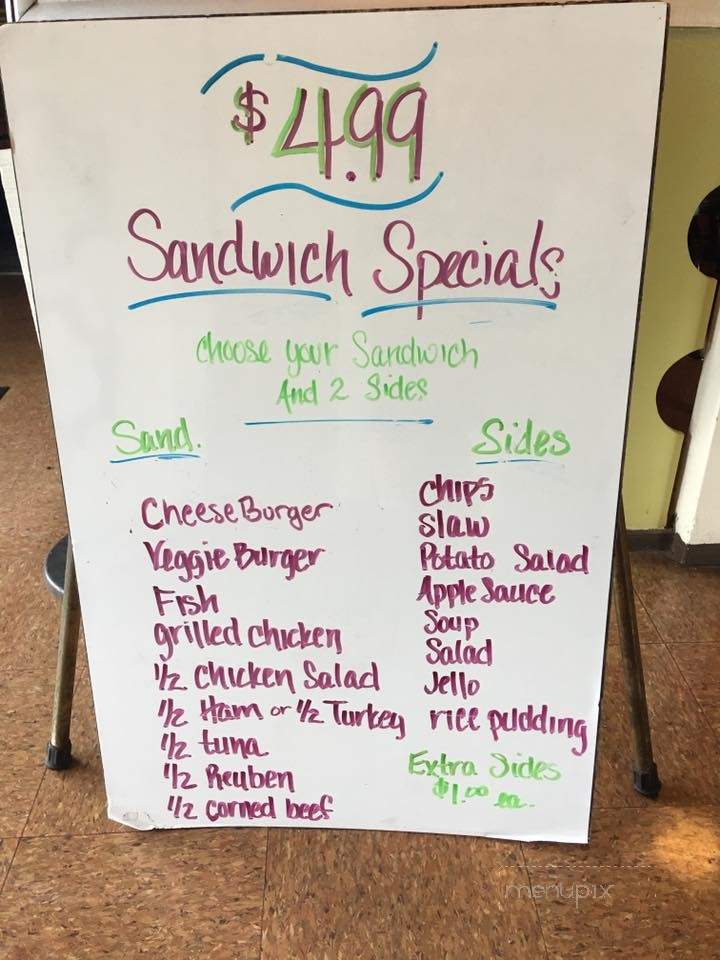 $4.99
Sandwich Specials
Choose your Sandwich
And 2 Sides
Sand.
CheeseBurger
Veggie Burger
Fish
grilled chicken
1/2 Chicken Salad
1/2 Ham or 1/2 Turkey
1/2 tuna
1/2 Reuben
1/2 corned beef
Sides
Chips
Slaw
Potato Salad
Apple Sauce
Soup
Salad
Jello
rice pudding
Extra Sides
$1.00 ea.
menupix